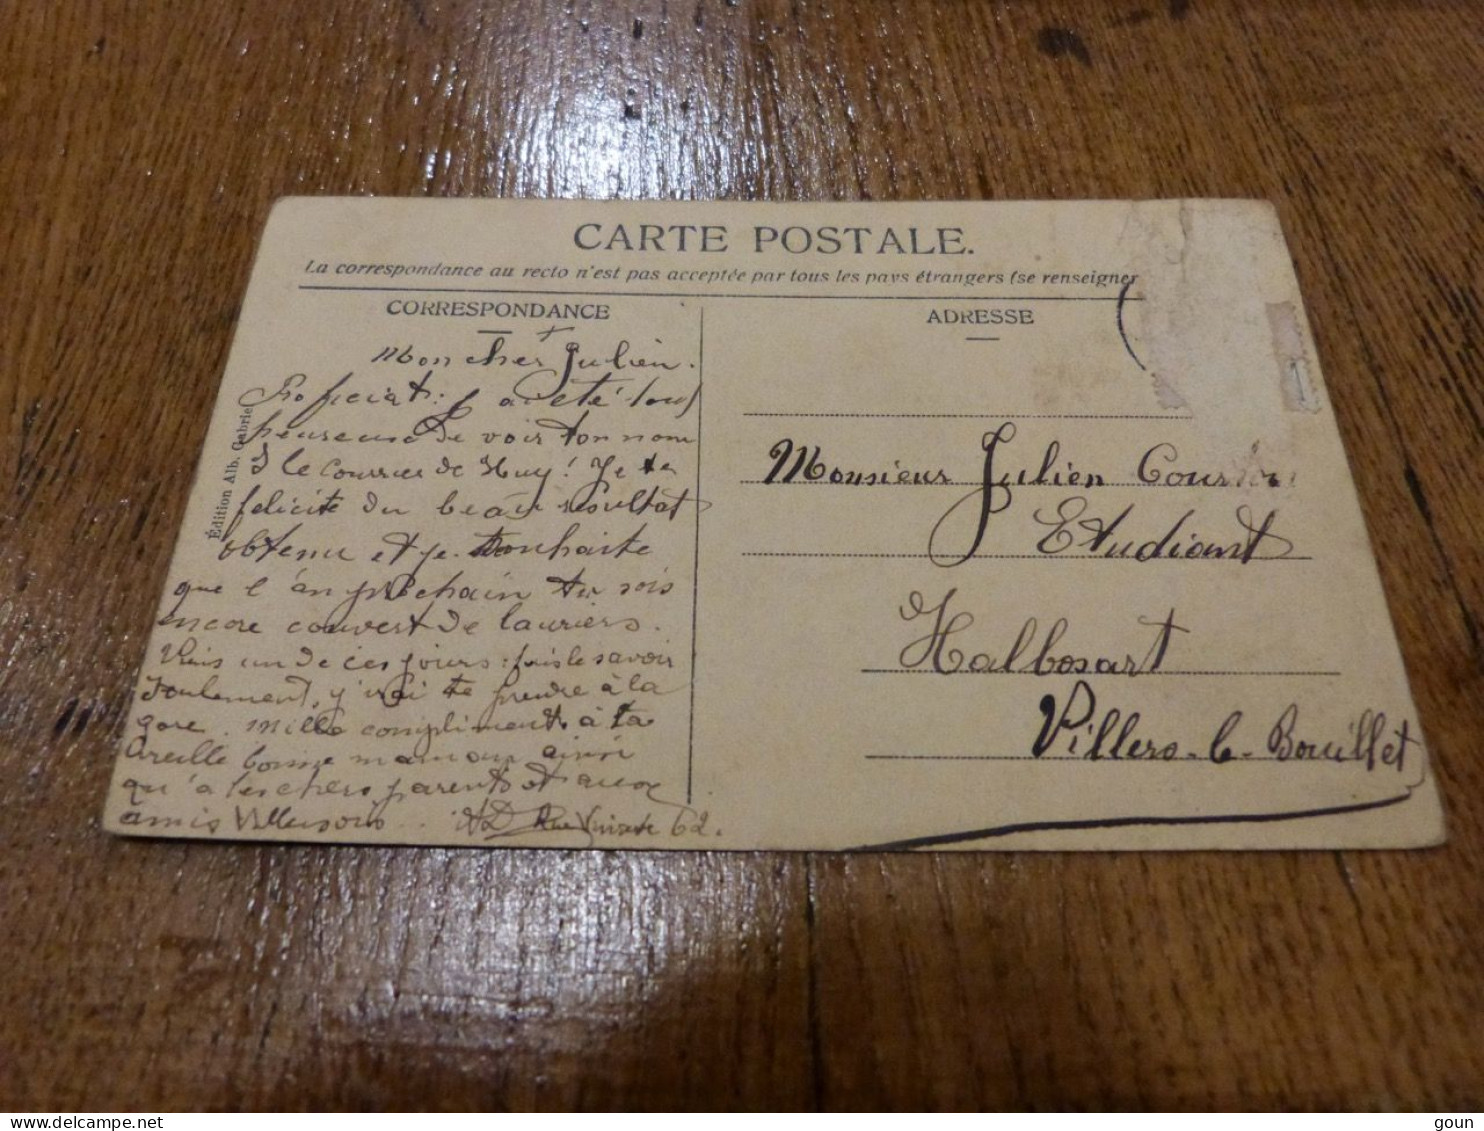 CARTE POSTALE.
La correspondance au recto n'est pas acceptée par tous les pays étrangers (se renseigner
CORRESPONDANCE
ADRESSE
Édition Alb. Gabriel
Mon cher Julien.
Proficiat: J'ai été tout
heureuse de voir ton nom
le Courrier de Huy! Je te
félicite du beau résultat
obtenu et je souhaite
que l'an prochain tu sois
encore couvert de lauriers.
Viens un de ces jours: fais le savoir
seulement, j'irai te prendre à la
gare. Mille compliments à ta
vieille bonne maman ainsi
qu'à tes chers parents et aux
amis AD Rue 62.
Monsieur Julien
Etudiant
Halbosart
Villers-le-Bouillet
Delcampe.net
goun